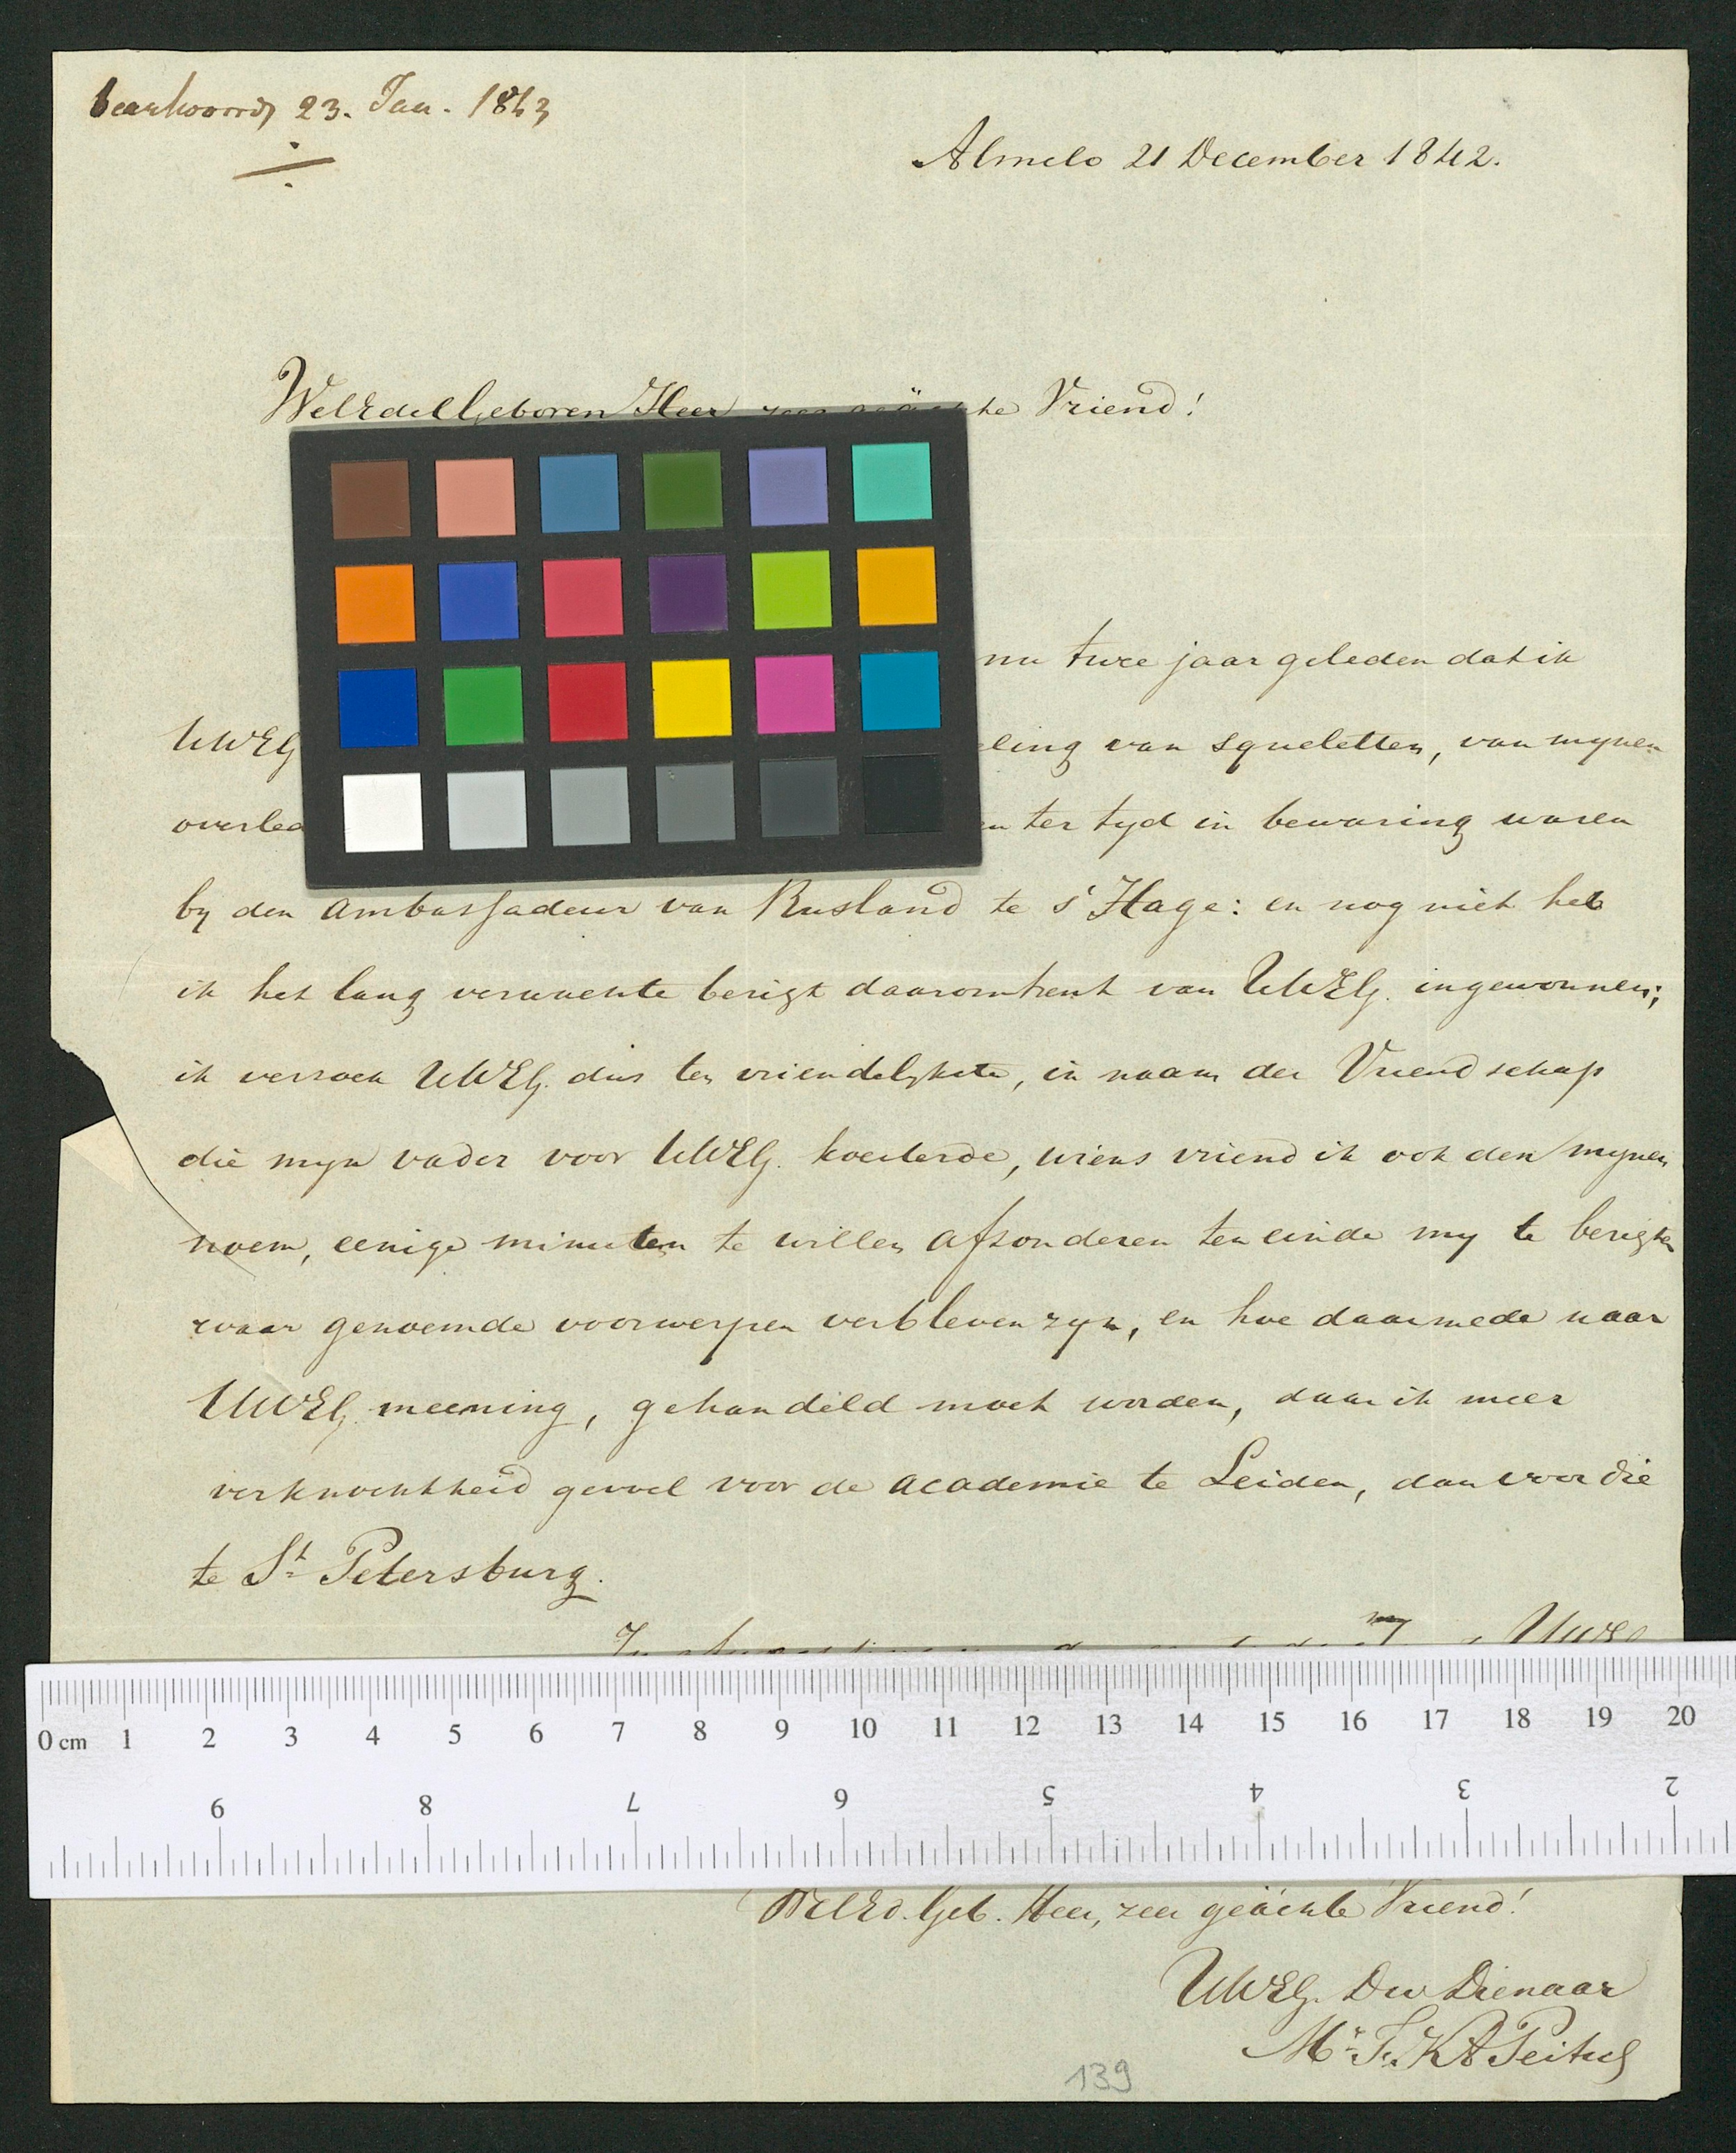 beantwoord 23. Jan. 1843
Almelo 21 December 1842.
WelEdelGeboren Heer zeer geächte Vriend!
nu twee jaar geleden dat ik
UWEG van squeletten, van mynen
ter tyd in bewaring waren
by den ambassadeur van Rusland te s'Hage: en nog niet heb
ik het lang verwachte berigt daaromtrent van UWEG. ingewonnen;
ik verzoek UWEG. dus ten vriendelykste, in naam der Vriendschap
die myn vader voor UWEG. koesterde, wiens vriend ik ook den mynen
noem, eenige minuten te willen afzonderen ten einde my te berigten
waar genoemde voorwerpen verbleven zyn, en hoe daarmede naar
UWEG. meening, gehandeld moet worden, daar ik meer
verknochtheid gevoel voor de academie te Leiden, dan voor die
te St. Petersburg.
0 cm 1 2 3 4 5 6 7 8 9 10 11 12 13 14 15 16 17 18 19 20
9 8 7 6 5 4 3 2
WelEd. Geb. Heer, zeer geächte Vriend!
UWEG. Dw Dienaar
Mr. F. K A Peitsch
139